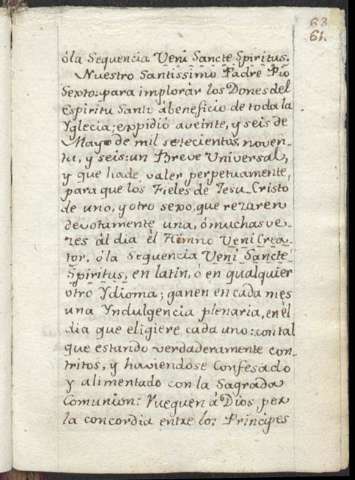 68
61.
óla Sequencia Veni Sancte Spiritus.
Nuestro Santissimo Padre Pio
Sexto: para implorar los Dones del
Espiritu Santo ábeneficio de toda la
Yglecia; expidió aveinte, y seis de
Mayo de mil setecientas, noven-
ta, y seis: un Breve Universal,
y que hade valer perpetuamente,
para que los Fieles de Jesu-Cristo
de uno, y otro sexo, que rezaren
devotamente una, ó muchas ve-
zes ál dia el Himno Veni Crea-
tor, óla Sequencia Veni Sancte
Spiritus, en latin, ó en qualquier
otro Ydioma; ganen en cada mes
una Yndulgencia plenaria, en él
dia que eligiere cada uno: con tal
que estando verdaderamente con-
tritos, y haviendose confesado
y alimentado con la Sagrada
Comunion: Rueguen á Dios por
la concordia entre los Principes